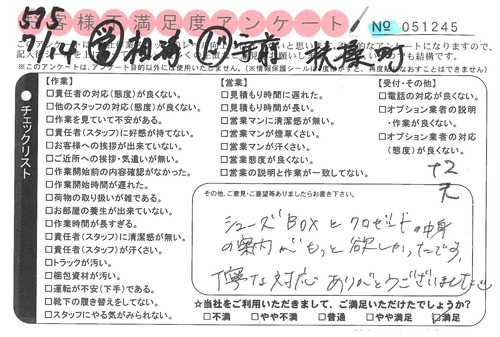 575
お客様不満足度アンケート
№ 051245
7/14 相馬 守 扶桑町
※このアンケートは、アンケート目的以外には使用いたしません。
チェックリスト
【作業】
□責任者の対応(態度)が良くない。
□他のスタッフの対応(態度)が良くない。
□作業を見ていて不安がある。
□責任者(スタッフ)に好感が持てない。
□お客様への挨拶が出来ていない。
□ご近所への挨拶・気遣いが無い。
□作業開始前の内容確認がなかった。
□作業開始時間が遅れた。
□荷物の取り扱いが雑である。
□お部屋の養生が出来ていない。
□作業時間が長すぎる。
□責任者(スタッフ)に清潔感が無い。
□責任者(スタッフ)が汗くさい。
□トラックが汚い。
□梱包資材が汚い。
□運転が不安(下手)である。
□靴下の履き替えをしてない。
□スタッフにやる気がみられない。
【営業】
□見積もり時間に遅れた。
□見積もり時間が長い。
□営業マンに清潔感が無い。
□営業マンが煙草くさい。
□営業マンが汗くさい。
□営業態度が良くない。
□営業の説明と作業が一致してない。
【受付・その他】
□電話の対応が良くない。
□オプション業者の説明
・作業が良くない。
□オプション業者の対応
(態度)が良くない。
+2
その他、ご意見・ご要望等ありましたらお書き下さい。
シューズBOXとクロゼットの中身
の案内がもっと欲しかったです。
丁寧な対応 ありがとうございました
☆当社をご利用いただきまして、ご満足いただけたでしょうか?
□不満 □やや不満 □普通 □やや満足 □満足